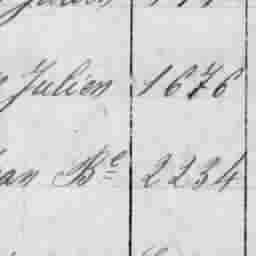 Julien 1676
an Bte 2234